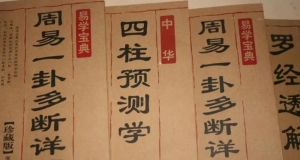 易学宝典
周易一卦多断详
【珍藏版】
中华
四柱预测学
易学宝典
周易一卦多断详
罗经透解